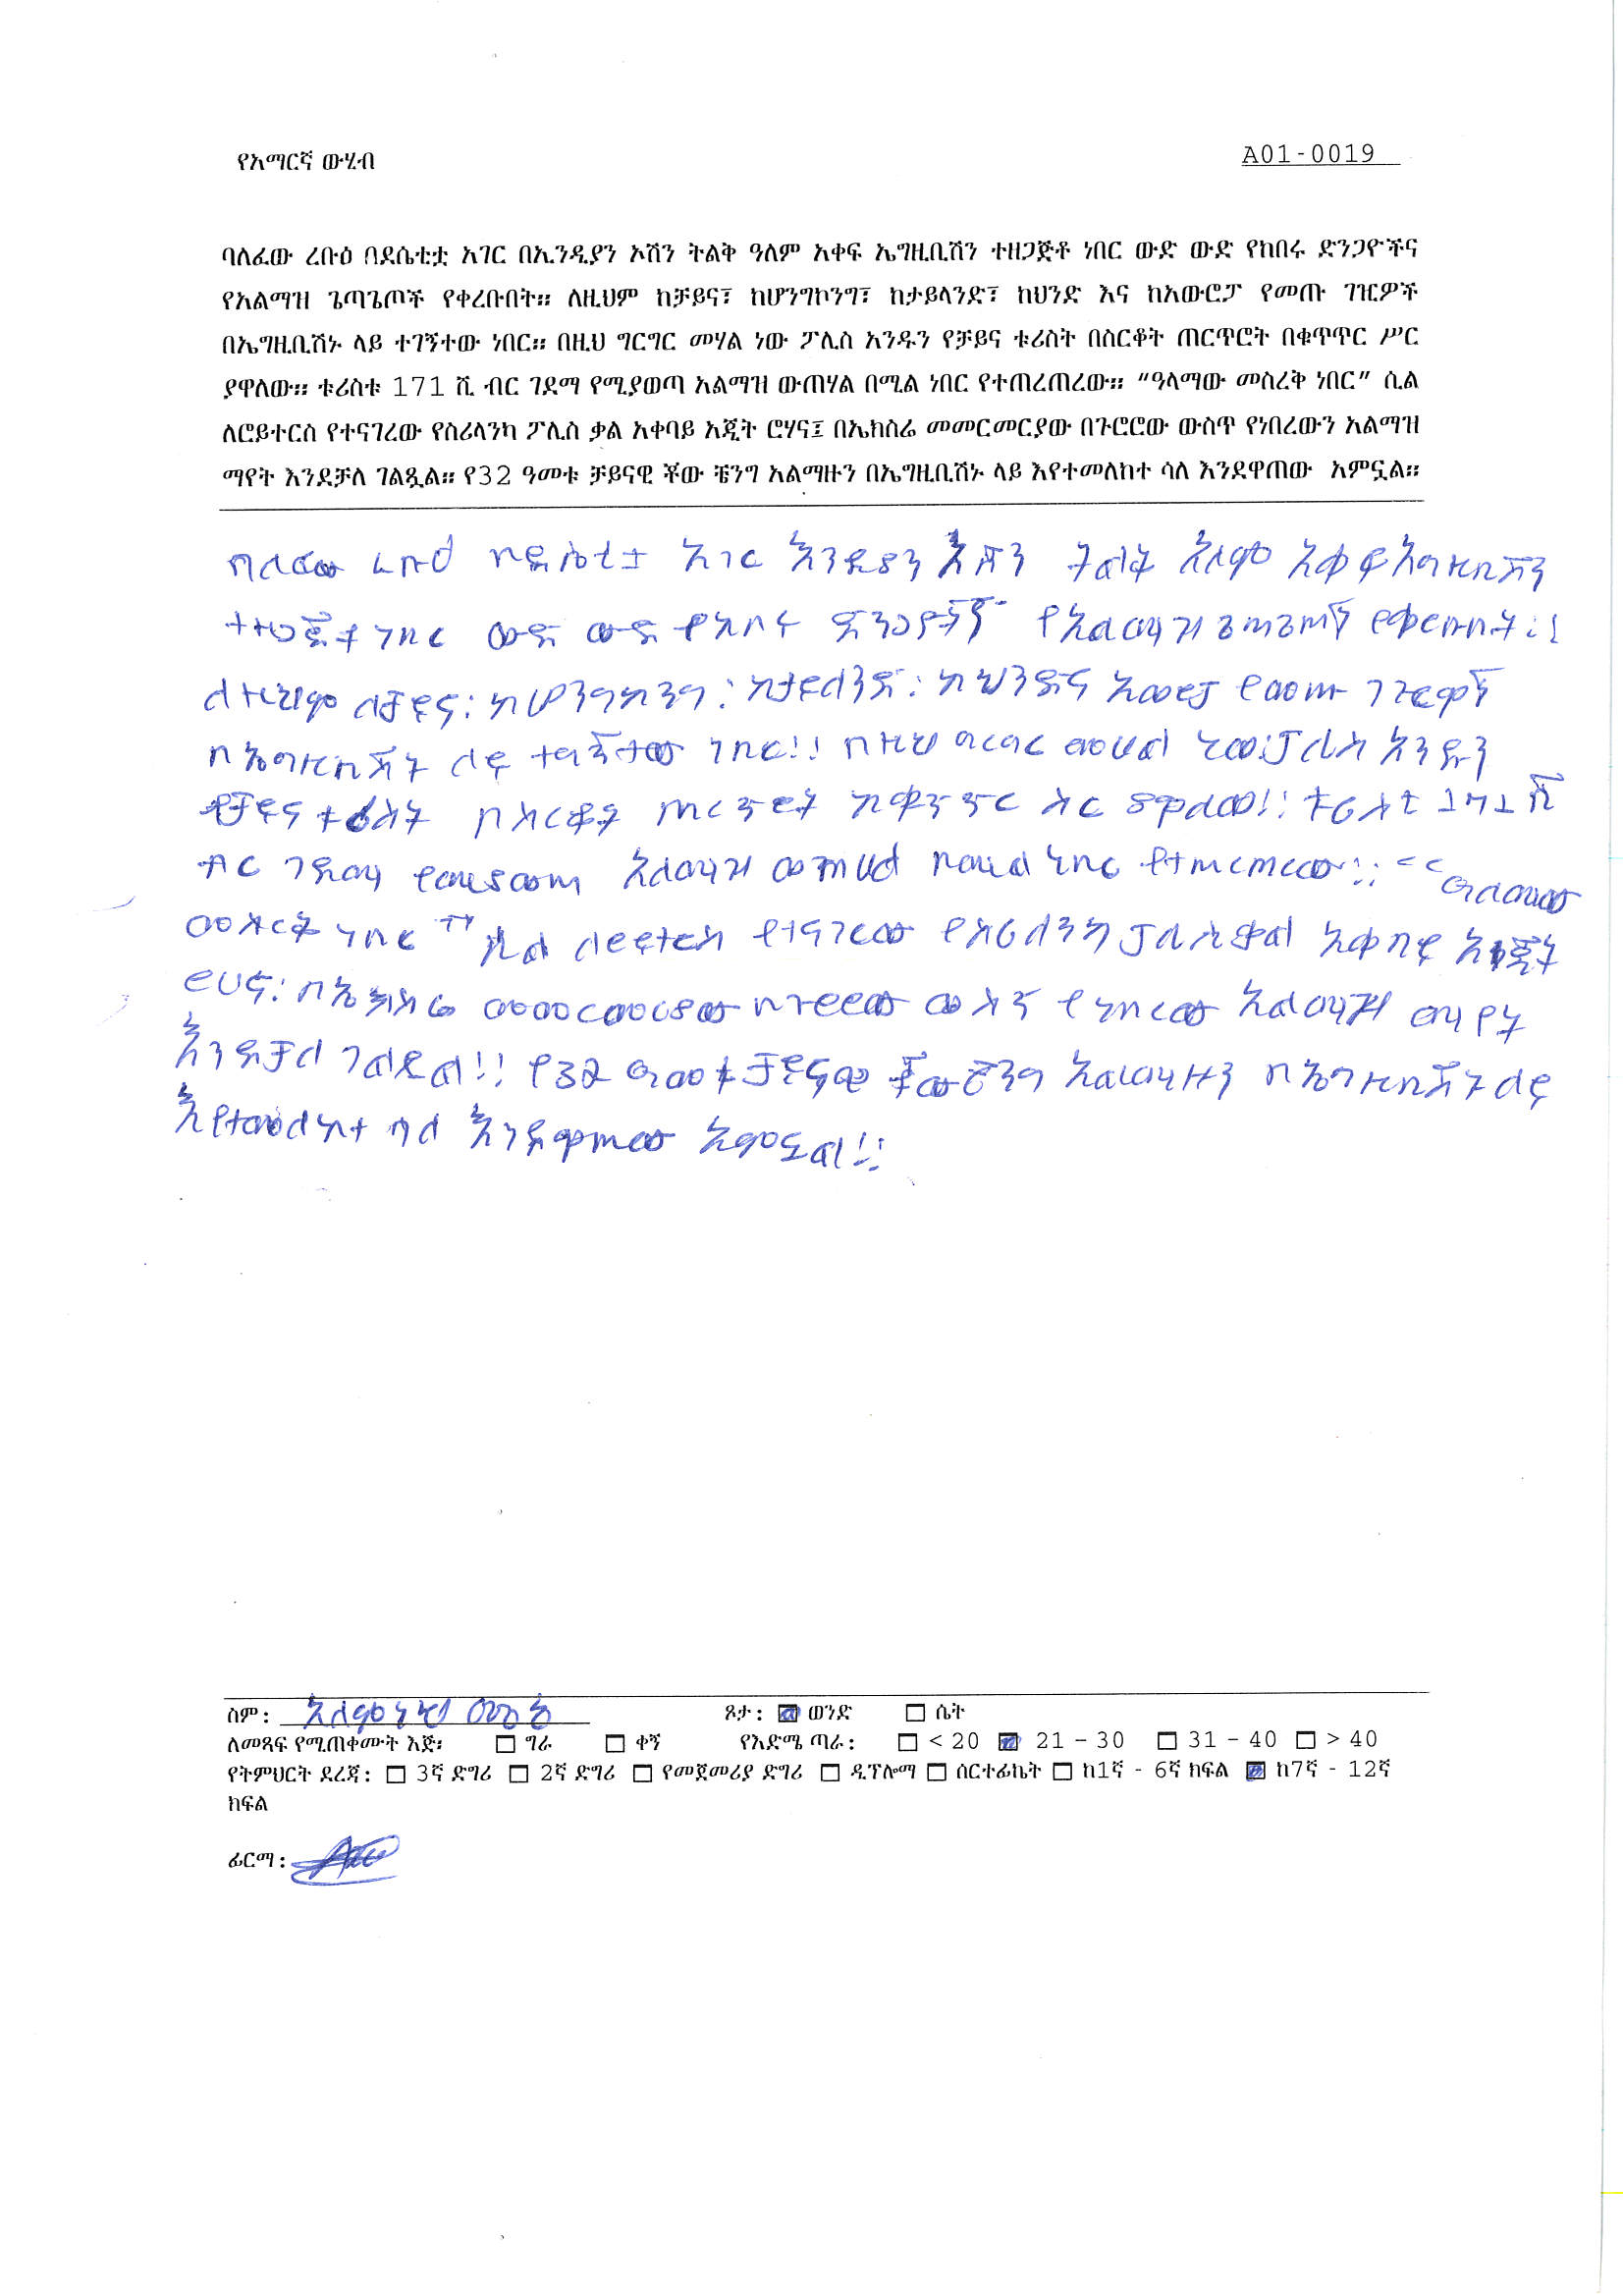 የአማርኛ ውሂብ
A01-0019
ባለፈው ረቡዕ በደሴቲቷ አገር በኢንዲያን ኦሽን ትልቅ ዓለም አቀፍ ኤግዚቢሽን ተዘጋጅቶ ነበር ውድ ውድ የከበሩ ድንጋዮችና
የአልማዝ ጌጣጌጦች የቀረቡበት። ለዚህም ከቻይና፣ ከሆንግኮንግ፣ ከታይላንድ፣ ከህንድ እና ከአውሮፓ የመጡ ገዢዎች
በኤግዚቢሽኑ ላይ ተገኝተው ነበር። በዚህ ግርግር መሃል ነው ፖሊስ አንዱን የቻይና ቱሪስት በስርቆት ጠርጥሮት በቁጥጥር ሥር
ያዋለው። ቱሪስቱ 171 ሺ ብር ገደማ የሚያወጣ አልማዝ ውጠሃል በሚል ነበር የተጠረጠረው። “ዓላማው መስረቅ ነበር” ሲል
ለሮይተርስ የተናገረው የስሪላንካ ፖሊስ ቃል አቀባይ አጂት ሮሃና፤ በኤክስሬ መመርመርያው በጉሮሮው ውስጥ የነበረውን አልማዝ
ማየት እንደቻለ ገልጿል። የ32 ዓመቱ ቻይናዊ ቾው ቼንግ አልማዙን በኤግዚቢሽኑ ላይ እየተመለከተ ሳለ እንደዋጠው አምኗል።
በለፈው ረቡዕ በደሴቲቷ አገር እንዲያን እሽን ትልቅ አለም አቀፍ እግዚቢሽን
ተዘጋጅቶ ነበር ውድ ውድ የከበሩ ድንጋዮችኝ የአልማዝ ጌጣጌጣኝ የቀረቡበት።
ለተዚህም ለቻይና፡ ከሆንግኮንግ፡ ከታይለንድ፡ ከህንድና አውሮፓ የመጡ ገዢዎች
በኤግዚቢሽኑ ላይ ተገኝተው ነበር።። በዚህ ግርግር መሀል ነው ፖሊስ አንዱን
የቻይና ቱሪስት በስርቆት ጠርጥሮት ከቁጥጥር ስር ያዋለው።። ቱሪስቱ 171 ሺ
ብር ገደማ የሚያወጣ አልማዝ ውጠሀል በሚል ነበር የተጠረጠረው።። “ዓላማው
መስረቅ ነበር” ሲል ለሮይተርስ የተናገረው የስሪላንካ ፖሊስ ቃል አቀባይ አጂት
ሮሀና፡ በኤክስሬ መመርመርያው በጉሮሮው ውስጥ የነበረው አልማዝ ማየት
እንደቻለ ገልጿል።። የ32 ዓመቱ ቻይናዊ ቾው ቼንግ አልማዙን በኤግዚቢሽኑ ላይ
እየተመለከተ ሳለ እንደዋጠው አምኗል።።
ስም: አለምነህ ፆታ: ወንድ ሴት
ለመጻፍ የሚጠቀሙት እጅ፡ ግራ ቀኝ የእድሜ ጣራ: < 20 21 - 30 31 - 40 > 40
የትምህርት ደረጃ: 3ኛ ድግሪ 2ኛ ድግሪ የመጀመሪያ ድግሪ ዲፕሎማ ሰርተፊኬት ከ1ኛ - 6ኛ ክፍል ከ7ኛ - 12ኛ
ክፍል
ፊርማ: